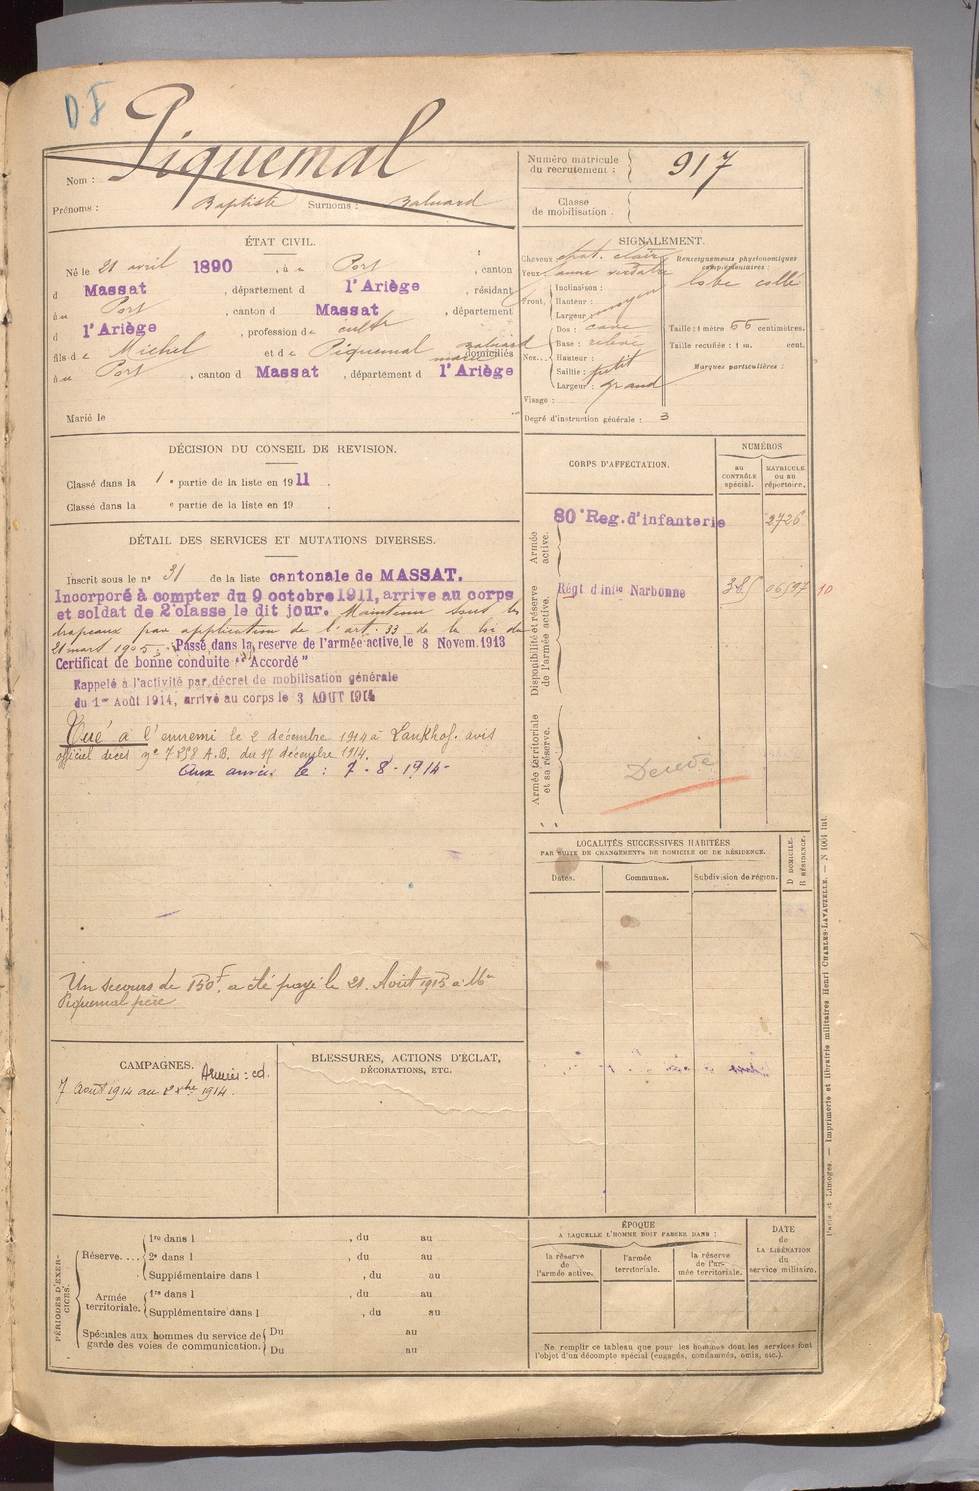 D.F
Nom : Piquemal
Prénoms : Baptiste Surnoms : Baluard
Numéro matricule du recrutement : 917
Classe de mobilisation :
ÉTAT CIVIL.
Né le 21 avril 1890, à u Port, canton
d Massat, département d l'Ariège, résidant
à u Port, canton d Massat, département
d l'Ariège, profession de cultr
fils de Michel et de Piquemal marie domiciliés
à u Port, canton d Massat, département d l'Ariège
Marié le
SIGNALEMENT.
Cheveux : chat. clairs
Yeux : jaune verdatre
Front, Inclinaison :
Hauteur : moyen
Largeur :
Nez... Dos : cave
Base : relevé
Hauteur :
Saillie : petit
Largeur : grand
Visage :
Renseignements physionomiques complémentaires :
lobe collé
Taille : 1 mètre 66 centimètres.
Taille rectifiée : 1 m. cent.
Marques particulières :
Degré d'instruction générale : 3
DÉCISION DU CONSEIL DE REVISION.
Classé dans la 1e partie de la liste en 1911.
Classé dans la e partie de la liste en 19 .
DÉTAIL DES SERVICES ET MUTATIONS DIVERSES.
Inscrit sous le n° 31 de la liste cantonale de MASSAT.
Incorporé à compter du 9 octobre 1911, arrive au corps
et soldat de 2e classe le dit jour. Maintenu sous les
drapeaux par application de l'art. 33 de la loi du
21 mars 1905. Passé dans la reserve de l'armée active, le 8 Novem. 1913
Certificat de bonne conduite "Accordé"
Rappelé à l'activité par décret de mobilisation générale
du 1er Août 1914, arrivé au corps le 3 AOUT 1914
Tué à l'ennemi le 2 décembre 1914 à Lankhof. avis
officiel décès n° 7258 A.B. du 17 décembre 1914.
Aux armées le : 7-8-1914
Un secours de 150f. a été payé le 21 Août 1915 à Mr
Piquemal père
CORPS D'AFFECTATION.
NUMÉROS
au CONTRÔLE spécial.
MATRICULE ou au répertoire.
Armée active.
80e Reg. d'infanterie 2726
Disponibilité et réserve de l'armée active.
Régt d'infie Narbonne 06597 10
Armée territoriale et sa réserve.
Décédé
LOCALITÉS SUCCESSIVES HABITÉES
PAR SUITE DE CHANGEMENTS DE DOMICILE OU DE RÉSIDENCE.
Dates.
Communes.
Subdivision de région.
D DOMICILE.
R RÉSIDENCE.
CAMPAGNES.
7 Août 1914 au 2 xbre 1914.
BLESSURES, ACTIONS D'ÉCLAT,
DÉCORATIONS, ETC.
PÉRIODES D'EXERCICES.
Réserve....
1re dans l , du au
2e dans l , du au
Supplémentaire dans l , du au
Armée territoriale.
1re dans l , du au
Supplémentaire dans l , du au
Spéciales aux hommes du service de garde des voies de communication.
Du au
Du au
ÉPOQUE
A LAQUELLE L'HOMME DOIT PASSER DANS :
la réserve de l'armée active.
l'armée territoriale.
la réserve de l'armée territoriale.
DATE DE LA LIBÉRATION du service militaire.
Ne remplir ce tableau que pour les hommes dont les services font
l'objet d'un décompte spécial (engagés, condamnés, omis, etc.).
Paris et Limoges. — Imprimerie et librairie militaires Henri CHARLES-LAVAUZELLE. — N 1001 Int.